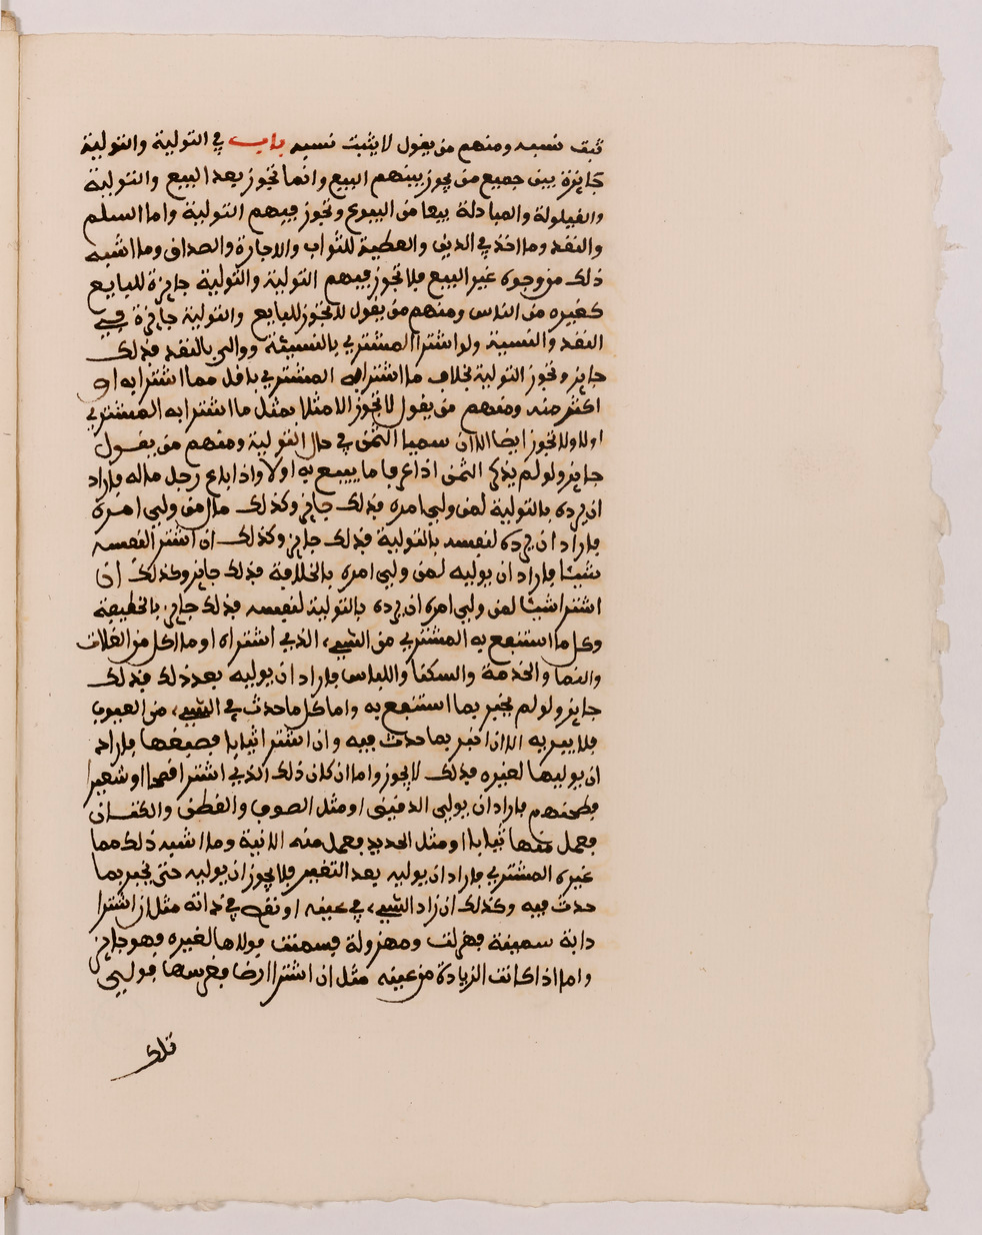 ثبت نسبه ومنهم من يقول لا يثبت نسبه باب في التولية والتولية
جايزة بين جميع من يجوز بينهم البيع وانما تجوز بعد البيع والتولية
والقيلولة والمبادلة بيعا من البيوع وتجوز فيهم التولية واما السلم
والنقد وما اخذ في الدين والعطية للثواب والاجارة والصداق وما اشبه
ذلك من وجوه غير البيع فلا تجوز فيهم التولية والتولية جايزة للبايع
كغيره من الناس ومنهم من يقول لا تجوز للبايع والتولية جايزة في
النقد والنسية ولو اشترا المشتري بالنسيئة ووالى بالنقد فذلك
جايز وتجوز التولية بخلاف ما اشترا به المشتري باقل مما اشترا به او
اكثر منه ومنهم من يقول لا تجوز الا مثلا بمثل ما اشترا به المشتري
اولا ولا تجوز ايضا الا ان سميا الثمن في حال التولية ومنهم من يقول
جايز ولو لم يذكر الثمن اذا عرفا ما يبيع به اولا واذا باع رجل ماله فاراد
ان يرده بالتولية لمن ولي امره فذلك جايز وكذلك مال من ولي امره
فاراد ان يرده لنفسه بالتولية فذلك جايز وكذلك ان اشترا لنفسه
شيئا فاراد ان يوليه لمن ولي امره بالخلافة فذلك جايز وكذلك ان
اشترا شيئا لمن ولي امره ان يرده بالتولية لنفسه فذلك جايز بالخليفة
وكل ما استنفع به المشتري من الشيء الذي اشتراه او ما اكل من الغلات
والنما والخدمة والسكنا واللباس فاراد ان يوليه بعد ذلك فذلك
جايز ولو لم يخبر بما استنفع به واما كل ما حدث في الشيء من العيوب
فلا يبريه الا ان اخبر بما حدث فيه وان اشترا ثيابا فصبغها فاراد
ان يوليها لغيره فذلك لا يجوز واما ان كان ذلك الذي اشترا قمحا او شعيرا
فطحنهم فاراد ان يولي الدقيق او مثل الصوف والقطن والكتان
فعمل منها ثيابا او مثل الحديد فعمل منه الانية وما اشبه ذلك مما
غيره المشتري فاراد ان يوليه بعد التغيير فلا يجوز ان يوليه حتى يخبر بما
حدث فيه وكذلك ان زاد الشيء في عينه او نقص في ذاته مثل ان اشترا
دابة سمينة فهزلت ومهزولة فسمنت فولاها لغيره فهو جايز
واما اذا كانت الزيادة من عينه مثل ان اشترا ارضا فغرسها فولي
تلك